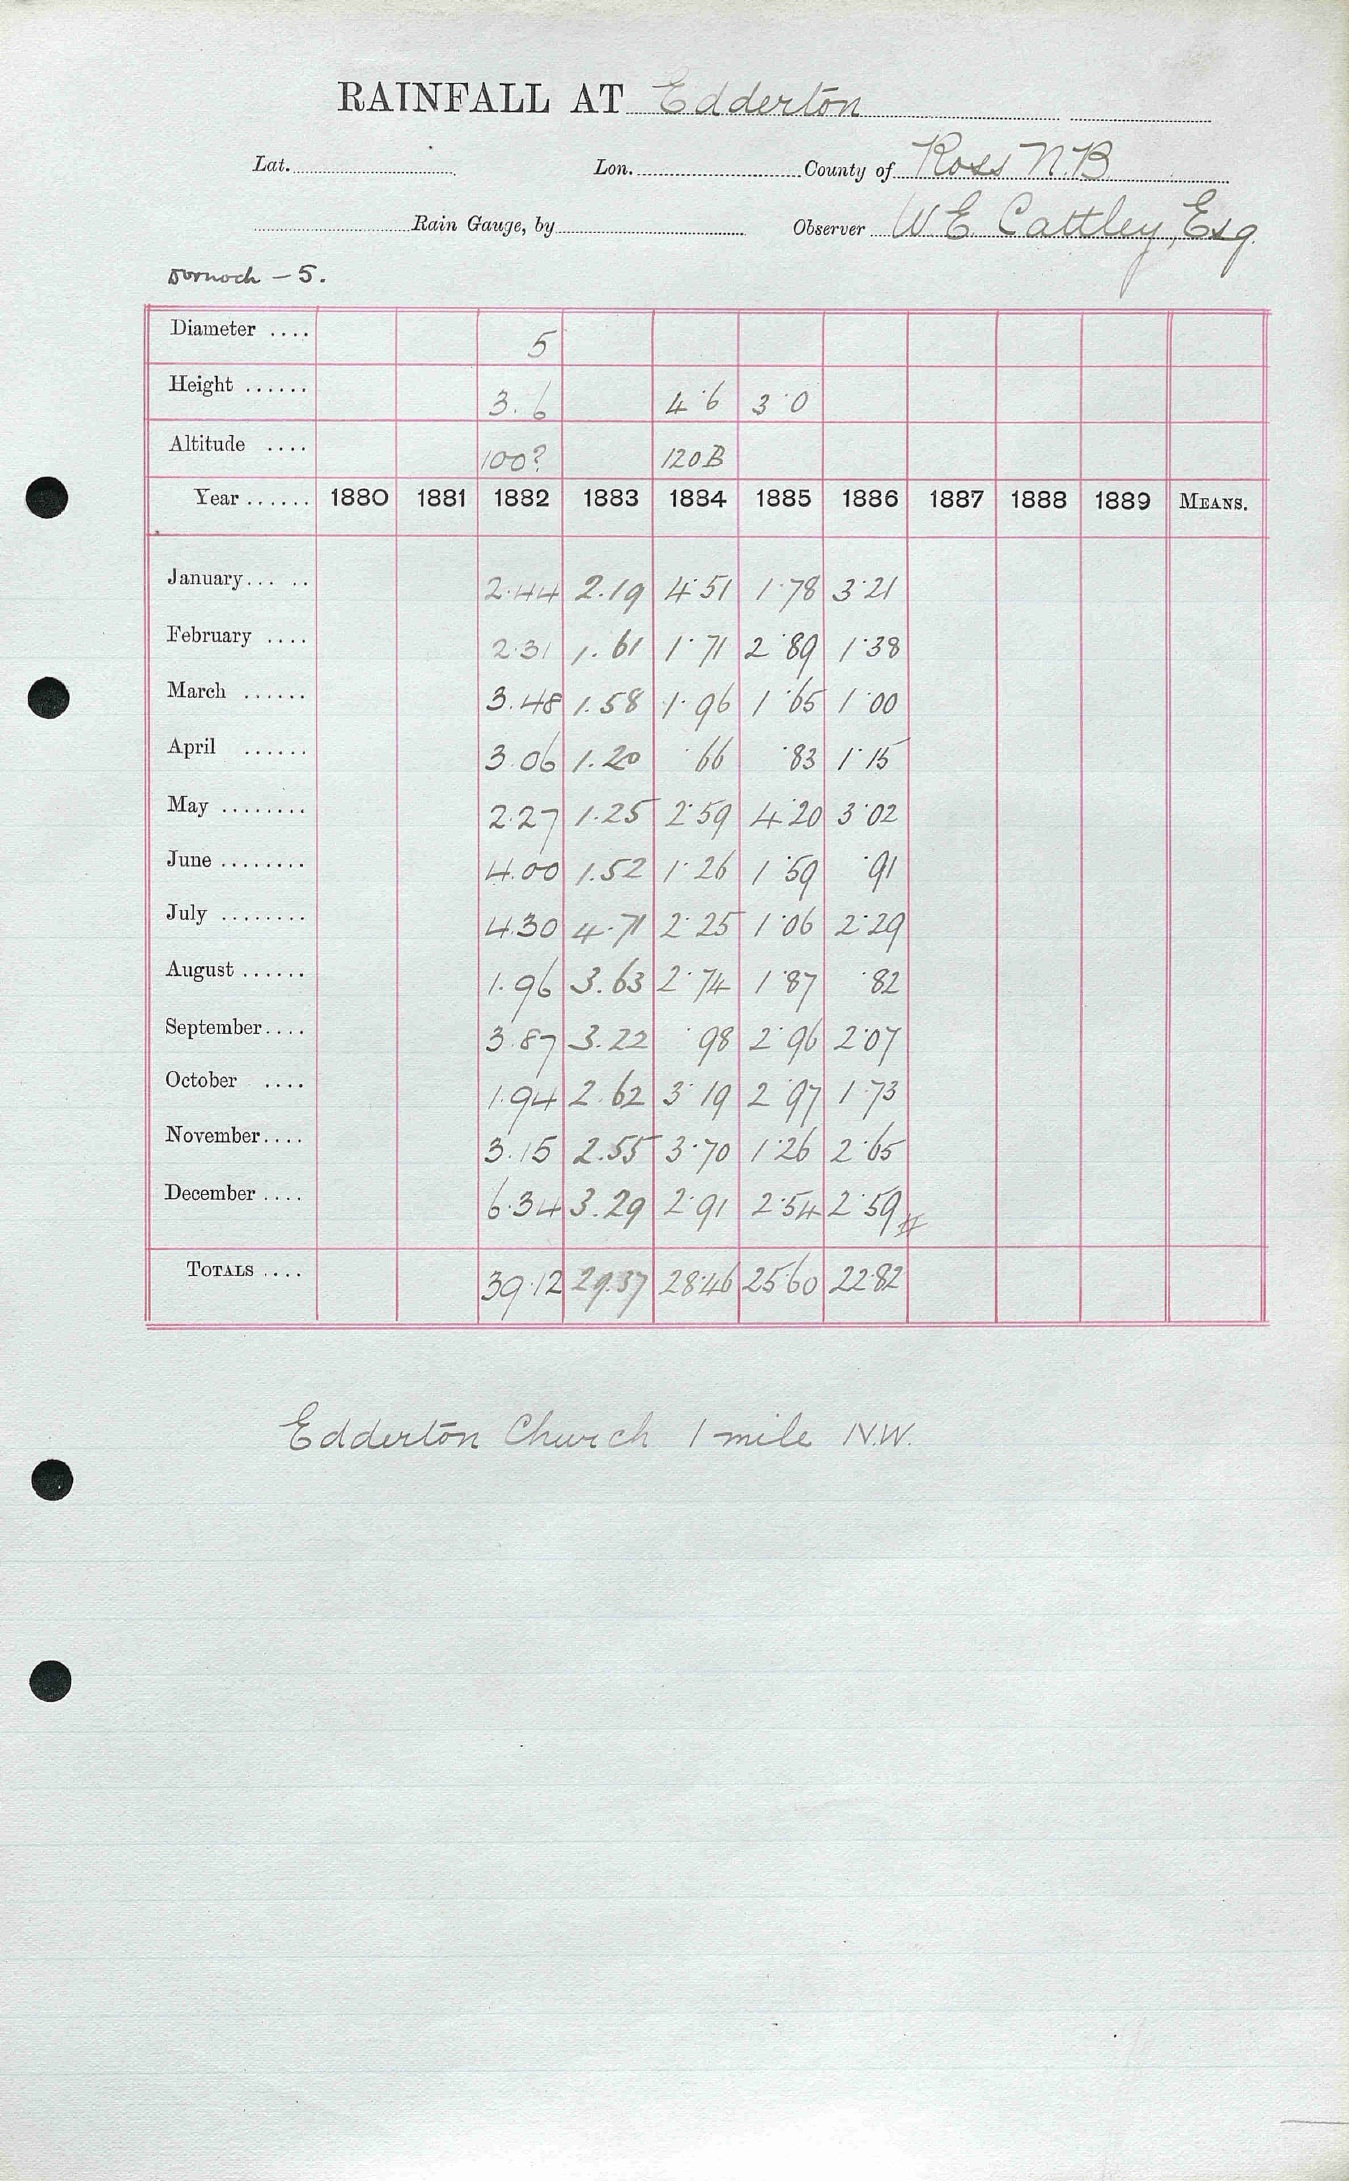 RAINFALL AT Edderton
Lat. Lon. County of Ross N.B.
Rain Gauge, by Observer W E Cattley, Esq.
Dornoch - 5.
Diameter .... 5
Height ...... 3.6 4·6 3·0
Altitude .... 100? 120B
Year ...... 1880 1881 1882 1883 1884 1885 1886 1887 1888 1889 MEANS.
January... .. 2.44 2.19 4·51 1·78 3·21
February .... 2.31 1.61 1·71 2·89 1·38
March ...... 3.48 1.58 1·96 1·65 1·00
April ...... 3.06 1.20 ·66 ·83 1·15
May ........ 2.27 1.25 2·59 4·20 3·02
June ........ 4.00 1.52 1·26 1·59 ·91
July ........ 4.30 4.71 2·25 1·06 2·29
August ...... 1.96 3.63 2·74 1·87 ·82
September.... 3.87 3.22 ·98 2·96 2·07
October .... 1.94 2.62 3·19 2·97 1·73
November.... 3.15 2.55 3·70 1·26 2·65
December .... 6.34 3.29 2·91 2·54 2·59
TOTALS .... 39.12 29.37 28·46 25·60 22·82
Edderton Church 1 mile N.W.